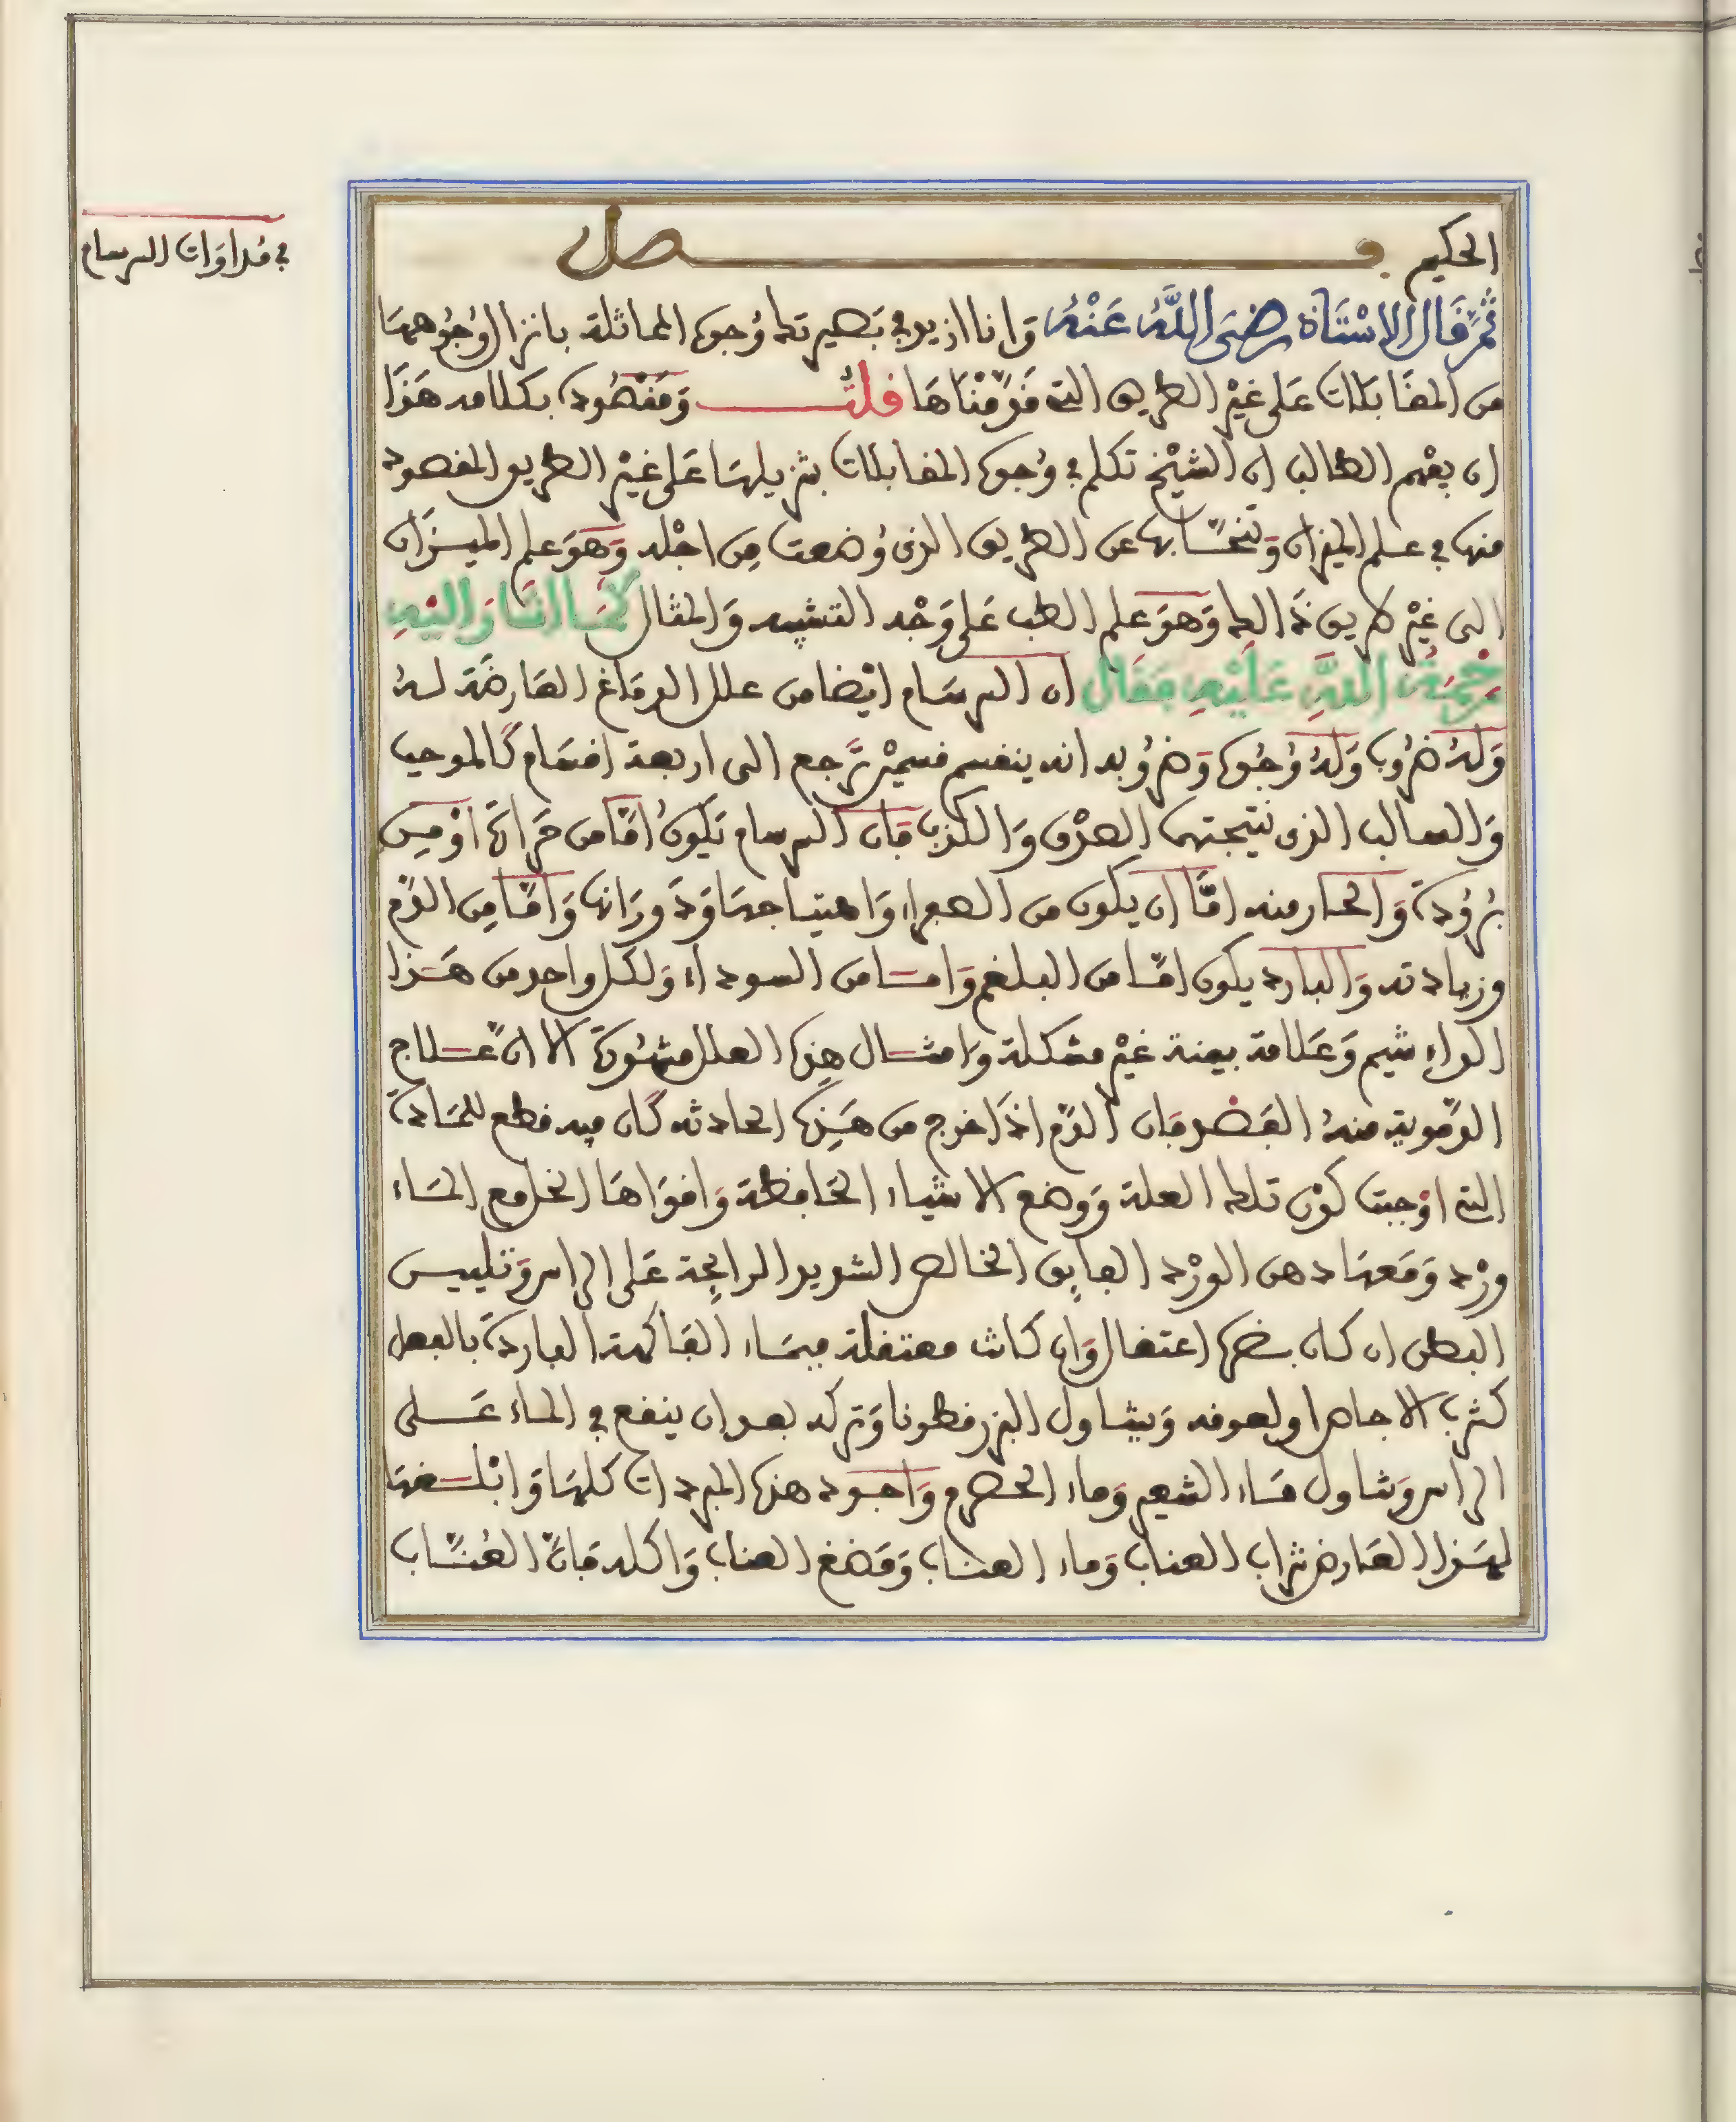 الحكيم فصل
في مداوات البرسام
ثم قال الاستاذ رضى الله عنه وانا ازيد في بصيرتك وجوه المماثلة بانزال وجوهها
من المقابلات على غير الطريق التي قدمناها قلت ومقصوده بكلامه هذا
ان يفهم الطالب ان الشيخ تكلم في وجوه المقابلات بتنزيلها على غير الطريق المقصود
منها في علم الميزان وتنحا بها عن الطريق الذي وضعت من اجله وهو علم الميزان
الى غير طريق ذالك وهو علم الطب على وجه التشبيه والمثال كما اشار اليه
رحمة الله عليه فقال ان البرسام ايضا من علل الدماغ العارضة له
وله ضروب وله وجوه وضروبه انه ينقسم قسمين ترجع الى اربعة اقسام كالموجب
والسالب الذي نتيجتهما الصدق والكذب فان البرسام تكون اما من حرارة او من
برودة والحار منه اما ان يكون من الصفراء واهتياجها ودورانها واما من الدم
وزيادته والبارد يكون اما من البلغم واما من السوداء ولكل واحد من هذا
الداء شيم وعلامة بينة غير مشكلة وامثال هذه العلل مشهورة الا ان علاج
الدموية منه الفصد فان الدم اذا اخرج من هذه الحادثه كان فيه قطع للمادة
التي اوجبت كون تلك العلة ووضع الاشياء الحافظة واقواها الخل مع الماء
ورد ومعهما دهن الورد الفايق الخالص الشديد الرايحة على الراس وتلييس
البطن ان كان بصرها اعتقال وان كانت معتقلة فبماء الفاكهة الباردة بالفعل
كشرب الاجاص او لعوقه ويتناول البزرقطونا وتركه بعد ان ينقع في الماء على
الراس وتناول ماء الشعير وماء الحصرم واجود هذه المبردات كلها وابلغها
لهذا العارض شراب العناب وماء العناب ومضغ العناب واكله فان العناب